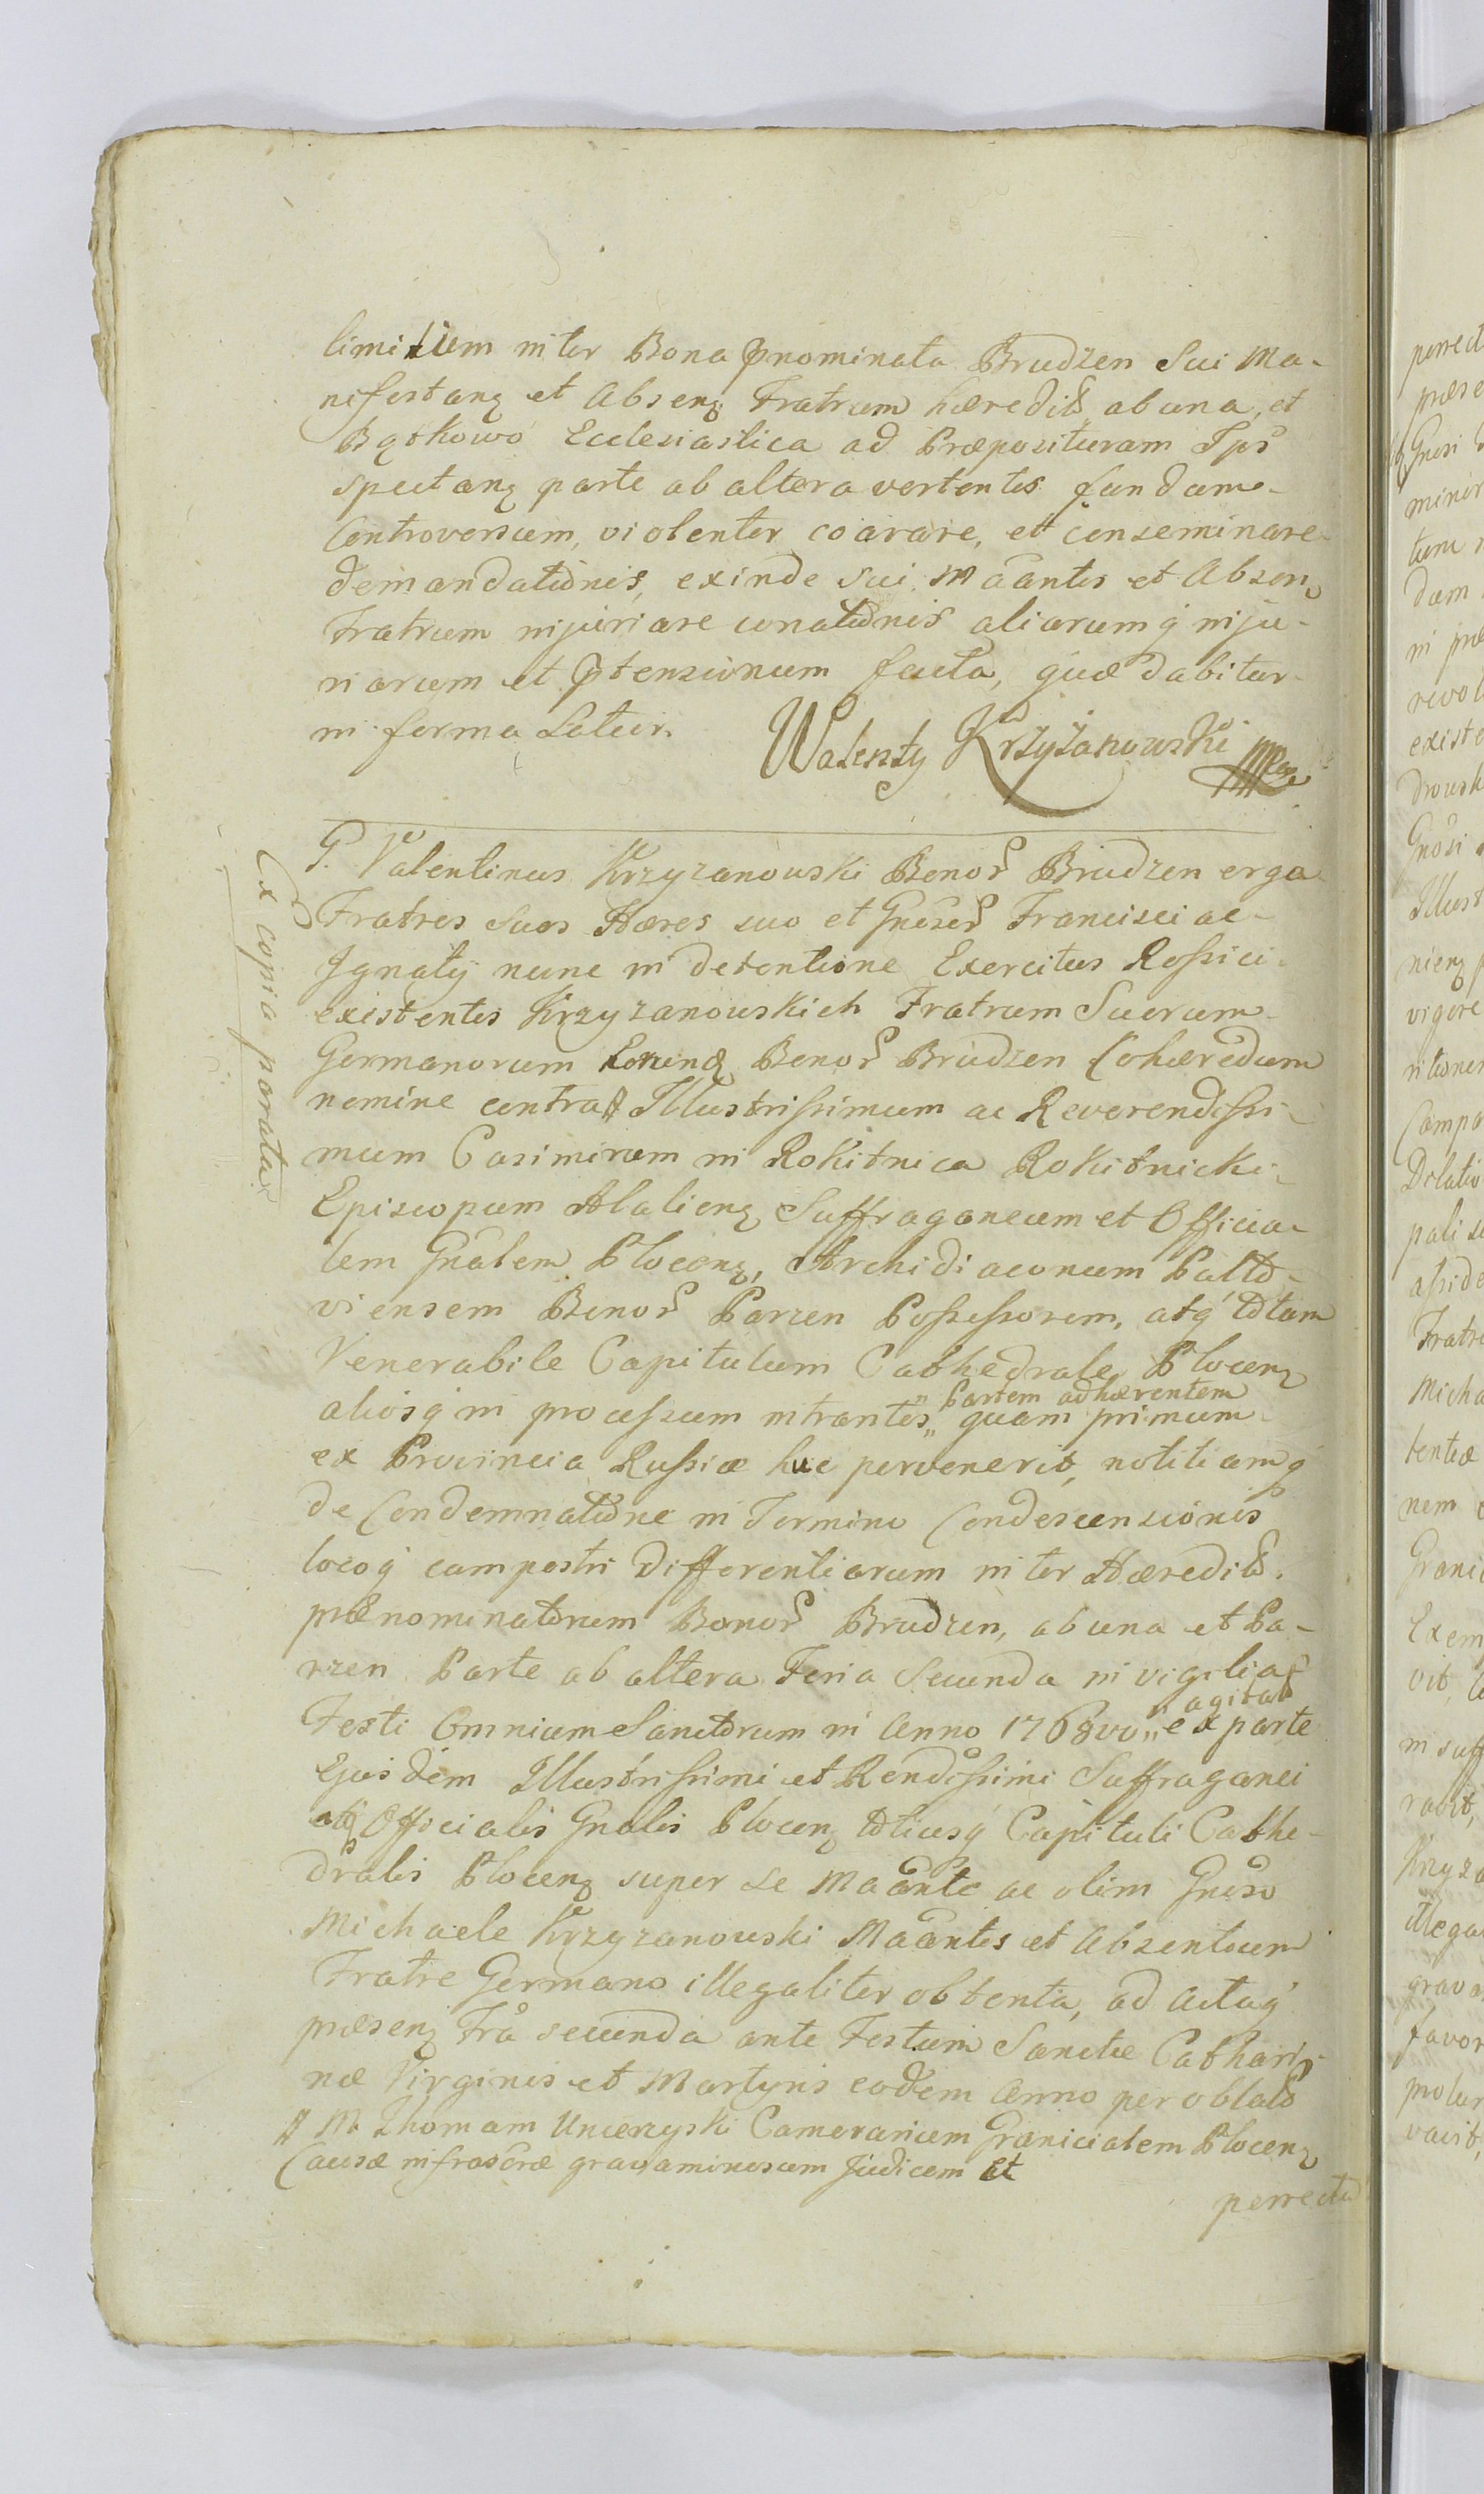 limitum inter Bona pnominata Brudzen Sui Ma-
nifestanꝫ et Absenꝫ Fratrum hæredit abuna, et
Bątkowo Ecclesiastica ad Præposituram Ips
spectanꝫ parte ab altera vertentes fundum
Controversum, violenter coarare, et conseminare
demandationis, exinde sui Maantis et Absenꝫ
Fratrum injuriare conationis aliarumq inju-
riarum et ptensionum facta, quæ dabitur
in forma Latior.
Walenty Krzyżanowski mp
Ex copia parata
G. Valentinus Krzyzanowski Bonor Brudzen erga
Fratres Suos Hæres suo et Gnosor Francisci ac
Ignatij nunc in detentione Exercitus Rossici
existentis Krzyzanowskich Fratrum Suorum
Germanorum Eorundꝫ Bonor Brudzen Cohæredum
nomine contra # Illustrissimum ac Reverendissi-
mum Casimirum in Rokitnica Rokitnicki
Episcopum Alaliensꝫ Suffraganeum et Officia-
lem Gnalem Plocenꝫ, Archidiaconum Pulto-
viensem Bonor Parzen Possessorem, atq totum
Venerabile Capitulum Cathedrale Plocenꝫ
aliosq in processum intrantes „ Partem adhærentem
quam primum
ex Provincia Russiæ huc pervenerit, notitiamq
de Condemnatione in Termino Condescensionis
locoq campestri Differentiarum inter Hæredit.
prænominatorum Bonor Brudzen, abuna et Pa-
rzen Parte ab altera Feria Secunda in vigilia
Festi Omnium Sanctorum in Anno 1768vo „ agitat
ex parte
Ejusdem Illustrissimi et Rendissimi Suffraganei
atq Officialis Gnalis Plocenꝫ totiusq Capituli Cathe-
dralis Plocenꝫ super se Maante ac olim Gnoso
Michaele Krzyzanowski Maantis et Absentium
Fratre Germano illegaliter obtenta, ad Actaq
præsenꝫ Fra secunda ante Festum Sanctæ Cathari-
næ Virginis et Martyris eodem Anno per oblat
# M. Thomam Umcerzyski Camerarium Granicialem Plocenꝫ
Causæ infrascræ gravaminosum Judicem et
perrecta